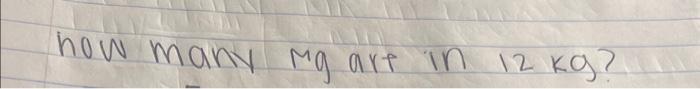 how many Mg are in 12 kg?